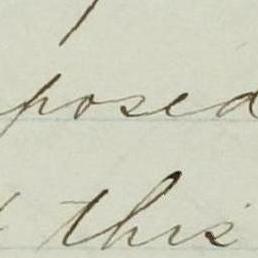 posed
this